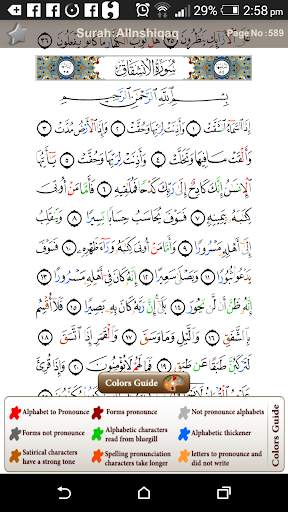 2:58 pm
Surah: AlInshiqaq
Page No :589
سُورَةُ الْاِنْشِقَاقِ
بِسْمِ ٱللَّهِ ٱلرَّحْمَٰنِ ٱلرَّحِيمِ
إِذَا ٱلسَّمَآءُ ٱنشَقَّتْ ١ وَأَذِنَتْ لِرَبِّهَا وَحُقَّتْ ٢ وَإِذَا ٱلْأَرْضُ مُدَّتْ ٣
وَأَلْقَتْ مَا فِيهَا وَتَخَلَّتْ ٤ وَأَذِنَتْ لِرَبِّهَا وَحُقَّتْ ٥ يَٰٓأَيُّهَا
ٱلْإِنسَٰنُ إِنَّكَ كَادِحٌ إِلَىٰ رَبِّكَ كَدْحًا فَمُلَٰقِيهِ ٦ فَأَمَّا مَنْ أُوتِىَ
كِتَٰبَهُۥ بِيَمِينِهِۦ ٧ فَسَوْفَ يُحَاسَبُ حِسَابًا يَسِيرًا ٨ وَيَنقَلِبُ
إِلَىٰٓ أَهْلِهِۦ مَسْرُورًا ٩ وَأَمَّا مَنْ أُوتِىَ كِتَٰبَهُۥ وَرَآءَ ظَهْرِهِۦ ١٠ فَسَوْفَ
يَدْعُوا۟ ثُبُورًا ١١ وَيَصْلَىٰ سَعِيرًا ١٢ إِنَّهُۥ كَانَ فِىٓ أَهْلِهِۦ مَسْرُورًا ١٣
إِنَّهُۥ ظَنَّ أَن لَّن يَحُورَ ١٤ بَلَىٰٓ إِنَّ رَبَّهُۥ كَانَ بِهِۦ بَصِيرًا ١٥ فَلَآ أُقْسِمُ
بِٱلشَّفَقِ ١٦ وَٱلَّيْلِ وَمَا وَسَقَ ١٧ وَٱلْقَمَرِ إِذَا ٱتَّسَقَ ١٨
لَتَرْكَبُنَّ طَبَقًا عَن طَبَقٍ ١٩ فَمَا لَهُمْ لَا يُؤْمِنُونَ ٢٠ وَإِذَا قُرِئَ
Colors Guide
Alphabet to Pronounce
Forms pronounce
Not pronounce alphabets
Forms not pronounce
Alphabetic characters read from bluegill
Alphabetic thickener
Satirical characters have a strong tone
Spelling pronunciation characters take longer
letters to pronounce and did not write
Colors Guide